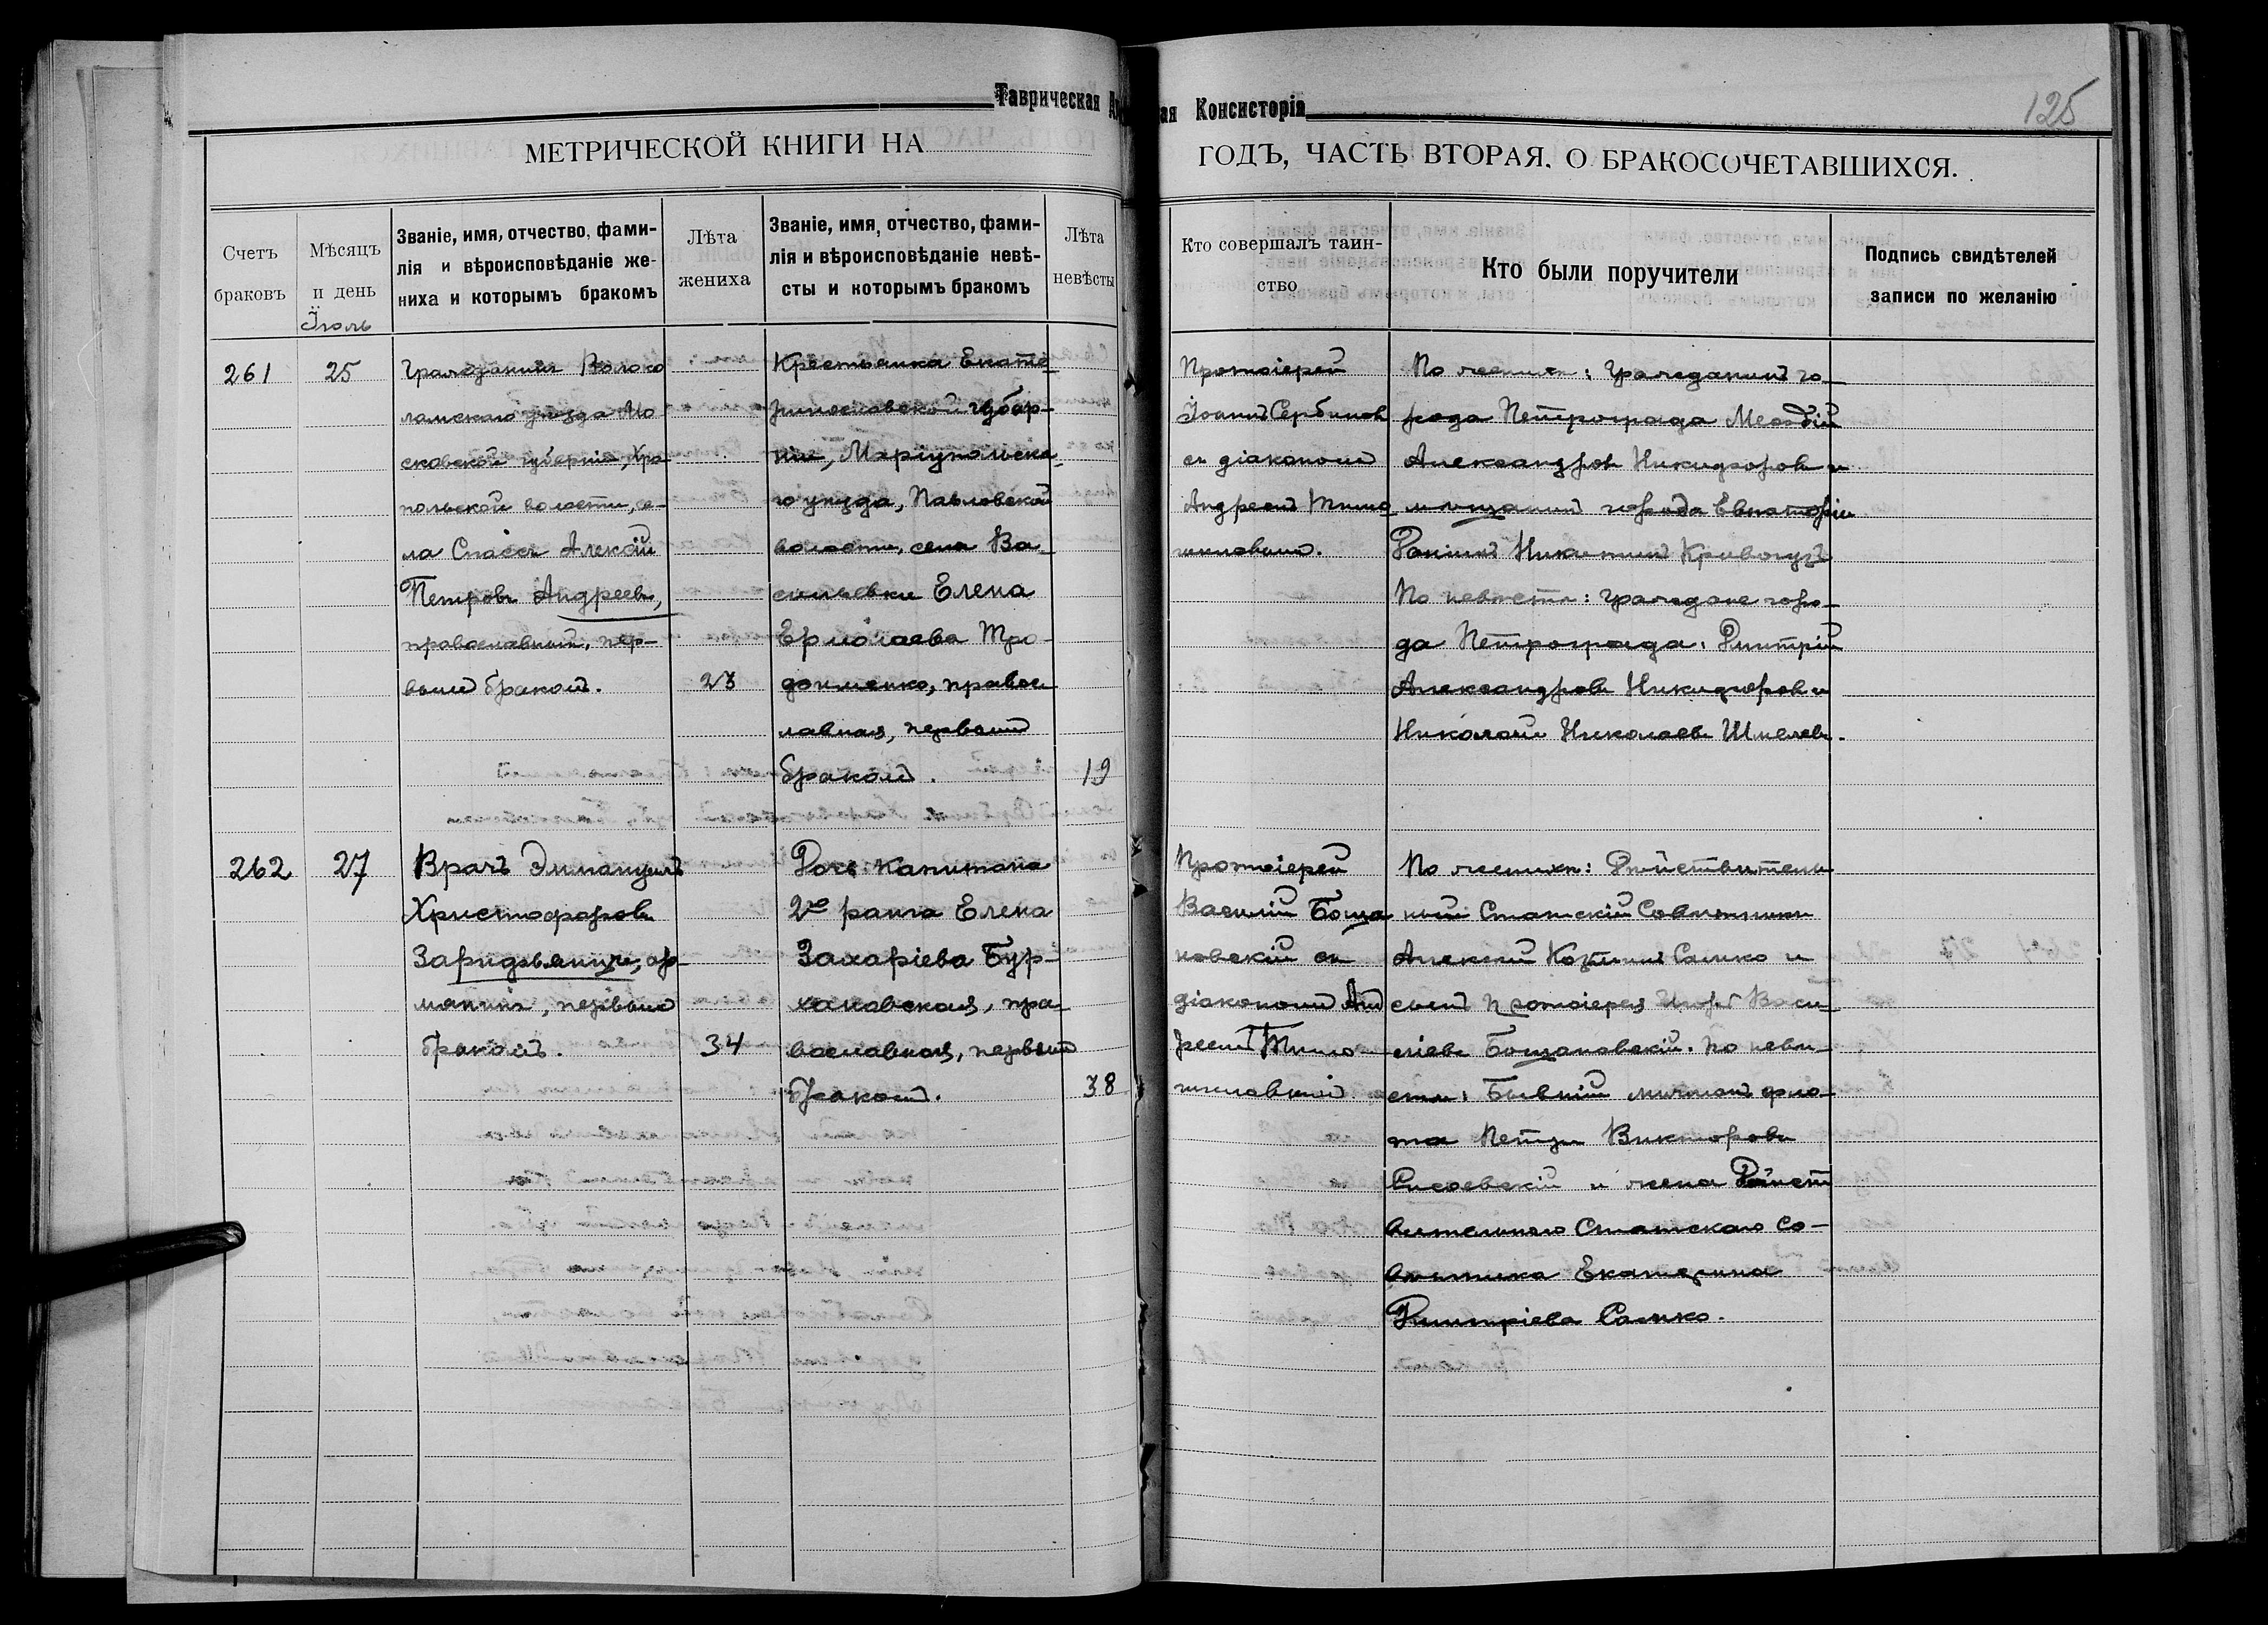 Таврическая
ая Консисторія
125
МЕТРИЧЕСКОЙ КНИГИ НА
ГОДЪ, ЧАСТЬ ВТОРАЯ. О БРАКОСОЧЕТАВШИХСЯ.
Счетъ
браковъ
Мѣсяцъ
и день
Званіе, имя, отчество, фами-
лія и вѣроисповѣданіе же-
ниха и которымъ бракомъ
Лѣта
жениха
Званіе, имя, отчество, фами-
лія и вѣроисповѣданіе невѣ-
сты и которымъ бракомъ
Лѣта
невѣсты
Кто совершалъ таин-
ство
Кто были поручители
Подпись свидѣтелей
записи по желанію
Іюль
261
25
Гражданинъ Волоко
ламскаго уѣзда Мо
сковской губерніи,
польской волости, се-
ла Спассъ Алексій
Петровъ Андреевъ,
православный, пер-
вымъ бракомъ.
23
Крестьянка Екате
ринославской губер-
ніи, Маріупольска
го уѣзда, Павловской
волости, села Ва
сильевки Елена
Ермолаева
правос
лавная, первымъ
бракомъ.
19
Протоіерей
Іоаннъ Сербиновъ
съ діакономъ
Андреемъ Тимо
шиловымъ.
По женихѣ: Гражданинъ го-
рода Петрограда
Александровъ Никифоровъ и
мѣщанинъ города Евпаторіи
Никитинъ
По невѣстѣ: Граждане горо-
да Петрограда: Димитрій
Александровъ Никифоровъ и
Николай Николаевъ Шмелевъ.
262
27
Врачъ Эммануилъ
Христофоровъ
ар-
мянинъ, первымъ
бракомъ.
34
Дочь капитана
2го ранга Елена
Захаріева Бур-
хановская, пра-
вославная, первымъ
бракомъ.
38
Протоіерей
Василій Боща
новскій съ
діакономъ Анд
реемъ Тимо-
шиловымъ
По женихѣ: Дѣйствитель
ный Статскій Совѣтникъ
Алексій Козьминъ Салько и
сынъ протоіерея Игорь Васи-
ліевъ Бощановскій. По невѣ-
стѣ: Бывшій мичманъ фло-
та Петръ Викторовъ
и жена Дѣйст
вительнаго Статскаго Со-
вѣтника Екатерина
Димитріева Салько.